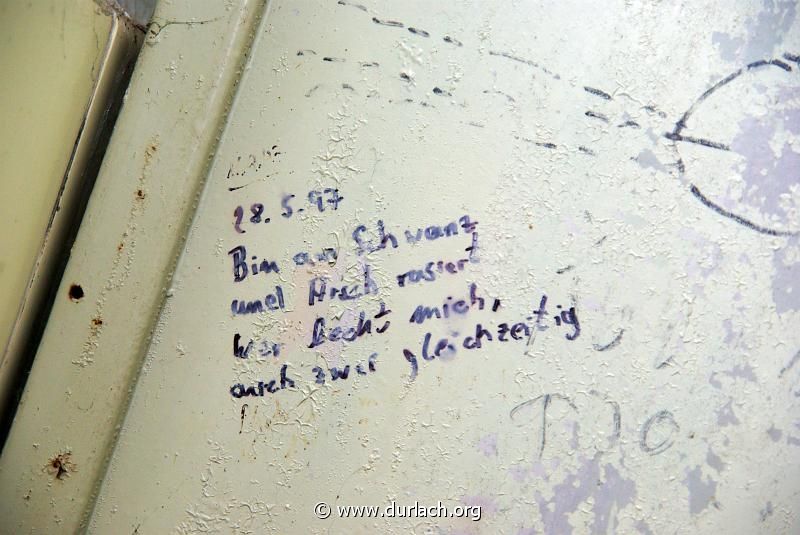 28.5.97
Bin am Schwanz
und Arsch rasiert
wer leckt mich,
auch zwei gleichzeitig
© www.durlach.org